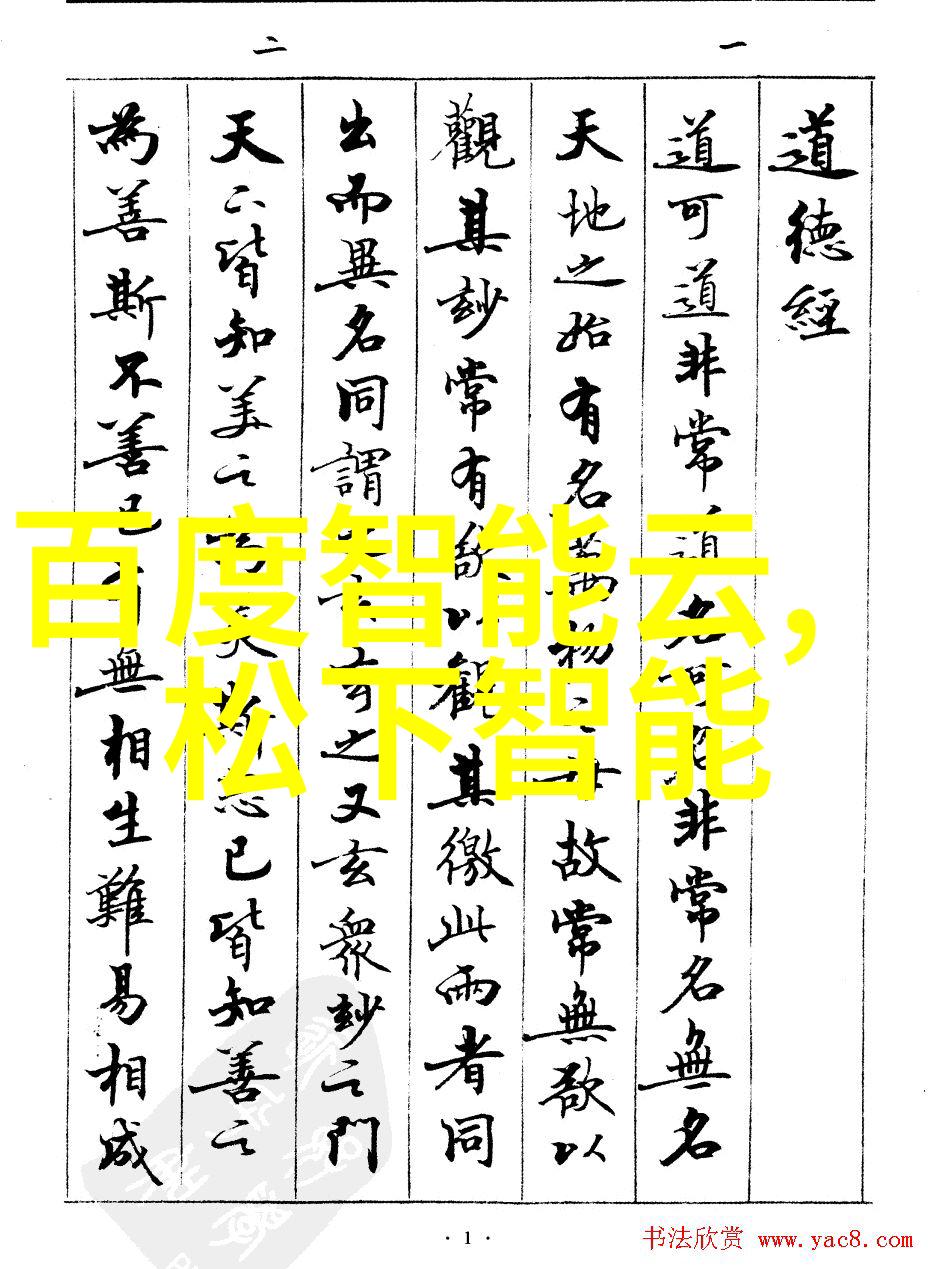 一
道德經
道可道非常道名可名非常名無名
天地之始有名萬物之母故常無欲以
觀其玅常有欲以觀其徼此兩者同
出而異名同謂之玄玄之又玄衆玅之門
二
天下皆知美之為美斯惡已皆知善之
為善斯不善已有無相生難易相成
百度智能云,
松下智能
· 1 ·
书法欣赏 www.yac8.com